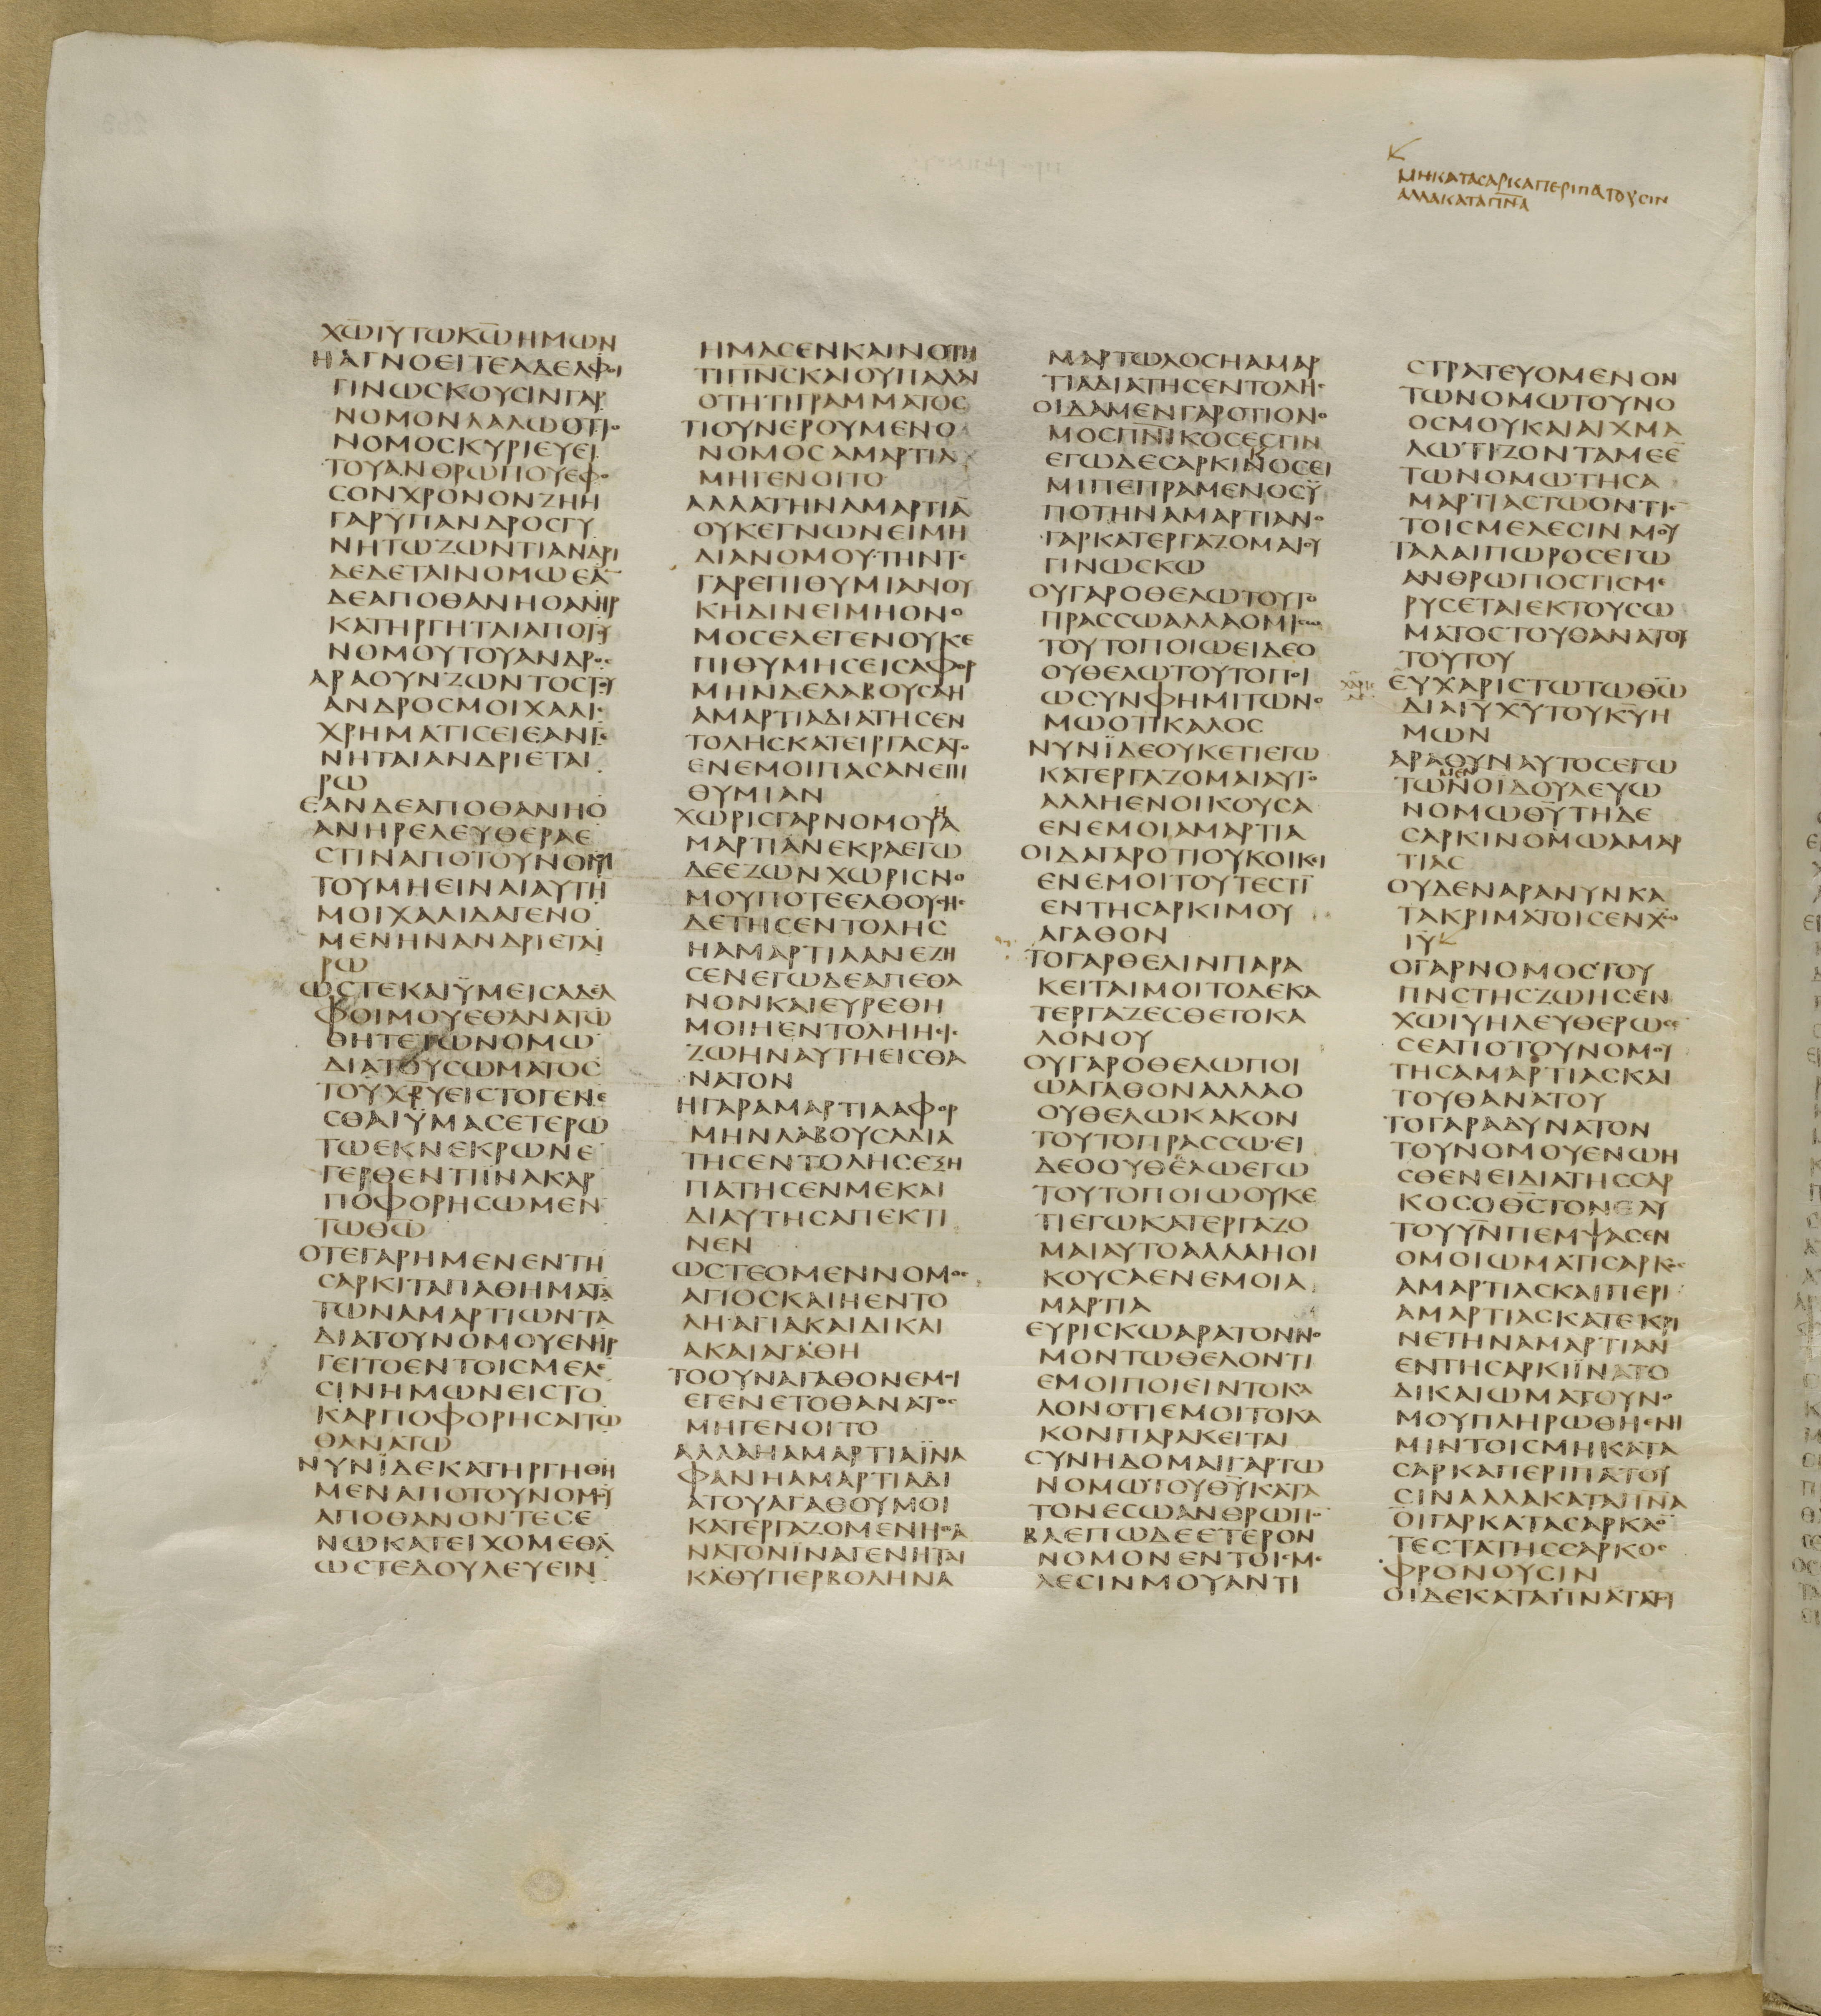 ΜΗΚΑΤΑСΑΡΚΑΠΕΡΙΠΑΤΟΥСΙΝ
ΑΛΛΑΚΑΤΑΠΝ̅Α
ΧΩ̅ΙΥ̅ΤΩΚΩ̅ΗΜΩΝ
ΗΑΓΝΟΕΙΤΕΑΔΕΛΦΟΙ
ΓΙΝΩСΚΟΥСΙΝΓΑΡ
ΝΟΜΟΝΛΑΛΩΟΤΙΟ
ΝΟΜΟСΚΥΡΙΕΥΕΙ
ΤΟΥΑΝΘΡΩΠΟΥΕΦΟ
СΟΝΧΡΟΝΟΝΖΗΗ
ΓΑΡΫΠΑΝΔΡΟСΓΥ
ΝΗΤΩΖΩΝΤΙΑΝΔΡΙ
ΔΕΔΕΤΑΙΝΟΜΩΕΑ̅
ΔΕΑΠΟΘΑΝΗΟΑΝΗΡ
ΚΑΤΗΡΓΗΤΑΙΑΠΟΤΟΥ
ΝΟΜΟΥΤΟΥΑΝΔΡΟС
ΑΡΑΟΥΝΖΩΝΤΟСΤΟΥ
ΑΝΔΡΟСΜΟΙΧΑΛΙС
ΧΡΗΜΑΤΙСΕΙΕΑΝΓΕ
ΝΗΤΑΙΑΝΔΡΙΕΤΑΙ
ΡΩ
ΕΑΝΔΕΑΠΟΘΑΝΗΟ
ΑΝΗΡΕΛΕΥΘΕΡΑΕ
СΤΙΝΑΠΟΤΟΥΝΟΜΟΥ
ΤΟΥΜΗΕΙΝΑΙΑΥΤΗ
ΜΟΙΧΑΛΙΔΑΓΕΝΟ
ΜΕΝΗΝΑΝΔΡΙΕΤΑΙ
ΡΩ
ΩСΤΕΚΑΙΫΜΕΙСΑΔΕΛ
ΦΟΙΜΟΥΕΘΑΝΑΤΩ
ΘΗΤΕΤΩΝΟΜΩ
ΔΙΑΤΟΥСΩΜΑΤΟС
ΤΟΥΧΡΥΕΙСΤΟΓΕΝΕ
СΘΑΙΫΜΑСΕΤΕΡΩ
ΤΩΕΚΝΕΚΡΩΝΕ
ΓΕΡΘΕΝΤΙΪΝΑΚΑΡ
ΠΟΦΟΡΗСΩΜΕΝ
ΤΩΘΩ̅
ΟΤΕΓΑΡΗΜΕΝΕΝΤΗ
СΑΡΚΙΤΑΠΑΘΗΜΑΤΑ
ΤΩΝΑΜΑΡΤΙΩΝΤΑ
ΔΙΑΤΟΥΝΟΜΟΥΕΝΗΡ
ΓΕΙΤΟΕΝΤΟΙСΜΕΛΕ
СΙΝΗΜΩΝΕΙСΤΟ
ΚΑΡΠΟΦΟΡΗСΑΙΤΩ
ΘΑΝΑΤΩ
ΝΥΝΪΔΕΚΑΤΗΡΓΗΘΗ
ΜΕΝΑΠΟΤΟΥΝΟΜΟΥ
ΑΠΟΘΑΝΟΝΤΕСΕ
ΝΩΚΑΤΕΙΧΟΜΕΘΑ
ΩСΤΕΔΟΥΛΕΥΕΙΝ
ΗΜΑСΕΝΚΑΙΝΟΤΗ
ΤΙΠΝ̅СΚΑΙΟΥΠΑΛΑΙ
ΟΤΗΤΙΓΡΑΜΜΑΤΟС
ΤΙΟΥΝΕΡΟΥΜΕΝΟ
ΝΟΜΟСΑΜΑΡΤΙΑ
ΜΗΓΕΝΟΙΤΟ
ΑΛΛΑΤΗΝΑΜΑΡΤΙΑ̅
ΟΥΚΕΓΝΩΝΕΙΜΗ
ΔΙΑΝΟΜΟΥΤΗΝΤΕ
ΓΑΡΕΠΙΘΥΜΙΑΝΟΥ
ΚΗΔΙΝΕΙΜΗΟΝΟ
ΜΟСΕΛΕΓΕΝΟΥΚΕ
ΠΙΘΥΜΗСΕΙСΑΦΟΡ
ΜΗΝΔΕΛΑΒΟΥСΑΗ
ΑΜΑΡΤΙΑΔΙΑΤΗСΕΝ
ΤΟΛΗСΚΑΤΕΙΡΓΑСΑΤΟ
ΕΝΕΜΟΙΠΑСΑΝΕΠΙ
ΘΥΜΙΑΝ
ΧΩΡΙСΓΑΡΝΟΜΟΥΑ
Η
ΜΑΡΤΙΑΝΕΚΡΑΕΓΩ
ΔΕΕΖΩΝΧΩΡΙСΝΟ
ΜΟΥΠΟΤΕΕΛΘΟΥСΗС
ΔΕΤΗСΕΝΤΟΛΗС
ΗΑΜΑΡΤΙΑΑΝΕΖΗ
СΕΝΕΓΩΔΕΑΠΕΘΑ
ΝΟΝΚΑΙΕΥΡΕΘΗ
ΜΟΙΗΕΝΤΟΛΗΗΕΙС
ΖΩΗΝΑΥΤΗΕΙСΘΑ
ΝΑΤΟΝ
ΗΓΑΡΑΜΑΡΤΙΑΑΦΟΡ
ΜΗΝΛΑΒΟΥСΑΔΙΑ
ΤΗСΕΝΤΟΛΗСΕΞΗ
ΠΑΤΗСΕΝΜΕΚΑΙ
ΔΙΑΥΤΗСΑΠΕΚΤΙ
ΝΕΝ
ΩСΤΕΟΜΕΝΝΟΜΟС
ΑΓΙΟСΚΑΙΗΕΝΤΟ
ΛΗΑΓΙΑΚΑΙΔΙΚΑΙ
ΑΚΑΙΑΓΑΘΗ
ΤΟΟΥΝΑΓΑΘΟΝΕΜΟΙ
ΕΓΕΝΕΤΟΘΑΝΑΤΟС
ΜΗΓΕΝΟΙΤΟ
ΑΛΛΑΗΑΜΑΡΤΙΑΪΝΑ
ΦΑΝΗΑΜΑΡΤΙΑΔΙ
ΑΤΟΥΑΓΑΘΟΥΜΟΙ
ΚΑΤΕΡΓΑΖΟΜΕΝΗΘΑ
ΝΑΤΟΝΪΝΑΓΕΝΗΤΑΙ
ΚΑΘΥΠΕΡΒΟΛΗΝΑ
ΜΑΡΤΩΛΟСΗΑΜΑΡ
ΤΙΑΔΙΑΤΗСΕΝΤΟΛΗС
ΟΙΔΑΜΕΝΓΑΡΟΤΙΟΝΟ
ΜΟСΠΝ̅ΙΚΟСΕСΤΙΝ
ΕΓΩΔΕСΑΡΚΙΝΟСΕΙ
ΜΙΠΕΠΡΑΜΕΝΟСΫ
ΠΟΤΗΝΑΜΑΡΤΙΑΝΟ
ΓΑΡΚΑΤΕΡΓΑΖΟΜΑΙΟΥ
ΓΙΝΩСΚΩ
ΟΥΓΑΡΟΘΕΛΩΤΟΥΤΟ
ΠΡΑССΩΑΛΛΑΟΜΙСΩ
ΤΟΥΤΟΠΟΙΩΕΙΔΕΟ
ΟΥΘΕΛΩΤΟΥΤΟΠΟΙ
ΩСΥΝΦΗΜΙΤΩΝΟ
ΜΩΟΤΙΚΑΛΟС
ΝΥΝΪΔΕΟΥΚΕΤΙΕΓΩ
ΚΑΤΕΡΓΑΖΟΜΑΙΑΥΤΟ
ΑΛΛΗΕΝΟΙΚΟΥСΑ
ΕΝΕΜΟΙΑΜΑΡΤΙΑ
ΟΙΔΑΓΑΡΟΤΙΟΥΚΟΙΚΕΙ
ΕΝΕΜΟΙΤΟΥΤΕСΤΙ̅
ΕΝΤΗСΑΡΚΙΜΟΥ
ΑΓΑΘΟΝ
ΤΟΓΑΡΘΕΛΙΝΠΑΡΑ
ΚΕΙΤΑΙΜΟΙΤΟΔΕΚΑ
ΤΕΡΓΑΖΕСΘΕΤΟΚΑ
ΛΟΝΟΥ
ΟΥΓΑΡΟΘΕΛΩΠΟΙ
ΩΑΓΑΘΟΝΑΛΛΑΟ
ΟΥΘΕΛΩΚΑΚΟΝ
ΤΟΥΤΟΠΡΑССΩΕΙ
ΔΕΟΟΥΘΕΛΩΕΓΩ
ΤΟΥΤΟΠΟΙΩΟΥΚΕ
ΤΙΕΓΩΚΑΤΕΡΓΑΖΟ
ΜΑΙΑΥΤΟΑΛΛΑΗΟΙ
ΚΟΥСΑΕΝΕΜΟΙΑ
ΜΑΡΤΙΑ
ΕΥΡΙСΚΩΑΡΑΤΟΝΝΟ
ΜΟΝΤΩΘΕΛΟΝΤΙ
ΕΜΟΙΠΟΙΕΙΝΤΟΚΑ
ΛΟΝΟΤΙΕΜΟΙΤΟΚΑ
ΚΟΝΠΑΡΑΚΕΙΤΑΙ
СΥΝΗΔΟΜΑΙΓΑΡΤΩ
ΝΟΜΩΤΟΥΘΥ̅ΚΑΤΑ
ΤΟΝΕСΩΑΝΘΡΩΠΟ̅
ΒΛΕΠΩΔΕΕΤΕΡΟΝ
ΝΟΜΟΝΕΝΤΟΙСΜΕ
ΛΕСΙΝΜΟΥΑΝΤΙ
СΤΡΑΤΕΥΟΜΕΝΟΝ
ΤΩΝΟΜΩΤΟΥΝΟ
ΟСΜΟΥΚΑΙΑΙΧΜΑ
ΛΩΤΙΖΟΝΤΑΜΕΕ̅
ΤΩΝΟΜΩΤΗСΑ
ΜΑΡΤΙΑСΤΩΟΝΤΙΕ̅
ΤΟΙСΜΕΛΕСΙΝΜΟΥ
ΤΑΛΑΙΠΩΡΟСΕΓΩ
ΑΝΘΡΩΠΟСΤΙСΜΕ
ΡΥСΕΤΑΙΕΚΤΟΥСΩ
ΜΑΤΟСΤΟΥΘΑΝΑΤΟΥ
ΤΟΥΤΟΥ
ΕΥΧΑΡΙСΤΩΤΩΘΩ̅
ΔΙΑΙΥ̅ΧΥ̅ΤΟΥΚΥ̅Η
ΜΩΝ
ΑΡΑΟΥΝΑΥΤΟСΕΓΩ
ΜΕΝ
ΤΩΝΟΙΔΟΥΛΕΥΩ
ΝΟΜΩΘΥ̅ΤΗΔΕ
СΑΡΚΙΝΟΜΩΑΜΑΡ
ΤΙΑС
ΟΥΔΕΝΑΡΑΝΥΝΚΑ
ΤΑΚΡΙΜΑΤΟΙСΕΝΧΩ̅
ΙΥ̅
ΟΓΑΡΝΟΜΟСΤΟΥ
ΠΝ̅СΤΗСΖΩΗСΕΝ
ΧΩ̅ΙΥ̅ΗΛΕΥΘΕΡΩСΕ
СΕΑΠΟΤΟΥΝΟΜΟΥ
ΤΗСΑΜΑΡΤΙΑСΚΑΙ
ΤΟΥΘΑΝΑΤΟΥ
ΤΟΓΑΡΑΔΥΝΑΤΟΝ
ΤΟΥΝΟΜΟΥΕΝΩΗ
СΘΕΝΕΙΔΙΑΤΗССΑΡ
ΚΟСΟΘ̅СΤΟΝΕΑΥ
ΤΟΥΥΝ̅ΠΕΜΨΑСΕΝ
ΟΜΟΙΩΜΑΤΙСΑΡΚΟС
ΑΜΑΡΤΙΑСΚΑΙΠΕΡΙ
ΑΜΑΡΤΙΑСΚΑΤΕΚΡΙ
ΝΕΤΗΝΑΜΑΡΤΙΑΝ
ΕΝΤΗСΑΡΚΙΪΝΑΤΟ
ΔΙΚΑΙΩΜΑΤΟΥΝΟ
ΜΟΥΠΛΗΡΩΘΗΕΝΗ
ΜΙΝΤΟΙСΜΗΚΑΤΑ
СΑΡΚΑΠΕΡΙΠΑΤΟΥ
СΙΝΑΛΛΑΚΑΤΑΠΝ̅Α
ΟΙΓΑΡΚΑΤΑСΑΡΚΑΟ̅
ΤΕСΤΑΤΗССΑΡΚΟС
ΦΡΟΝΟΥСΙΝ
ΟΙΔΕΚΑΤΑΠΝ̅ΑΤΑΤΟΥ